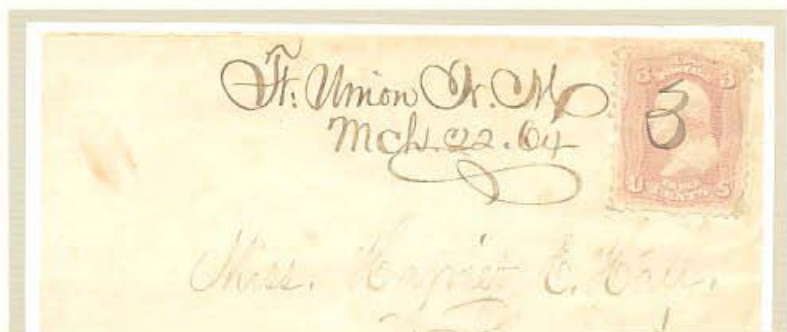 Ft. Union N. M.
Mch. 22. 64
3 3
3
U S
Miss. Harriet E. Hall.